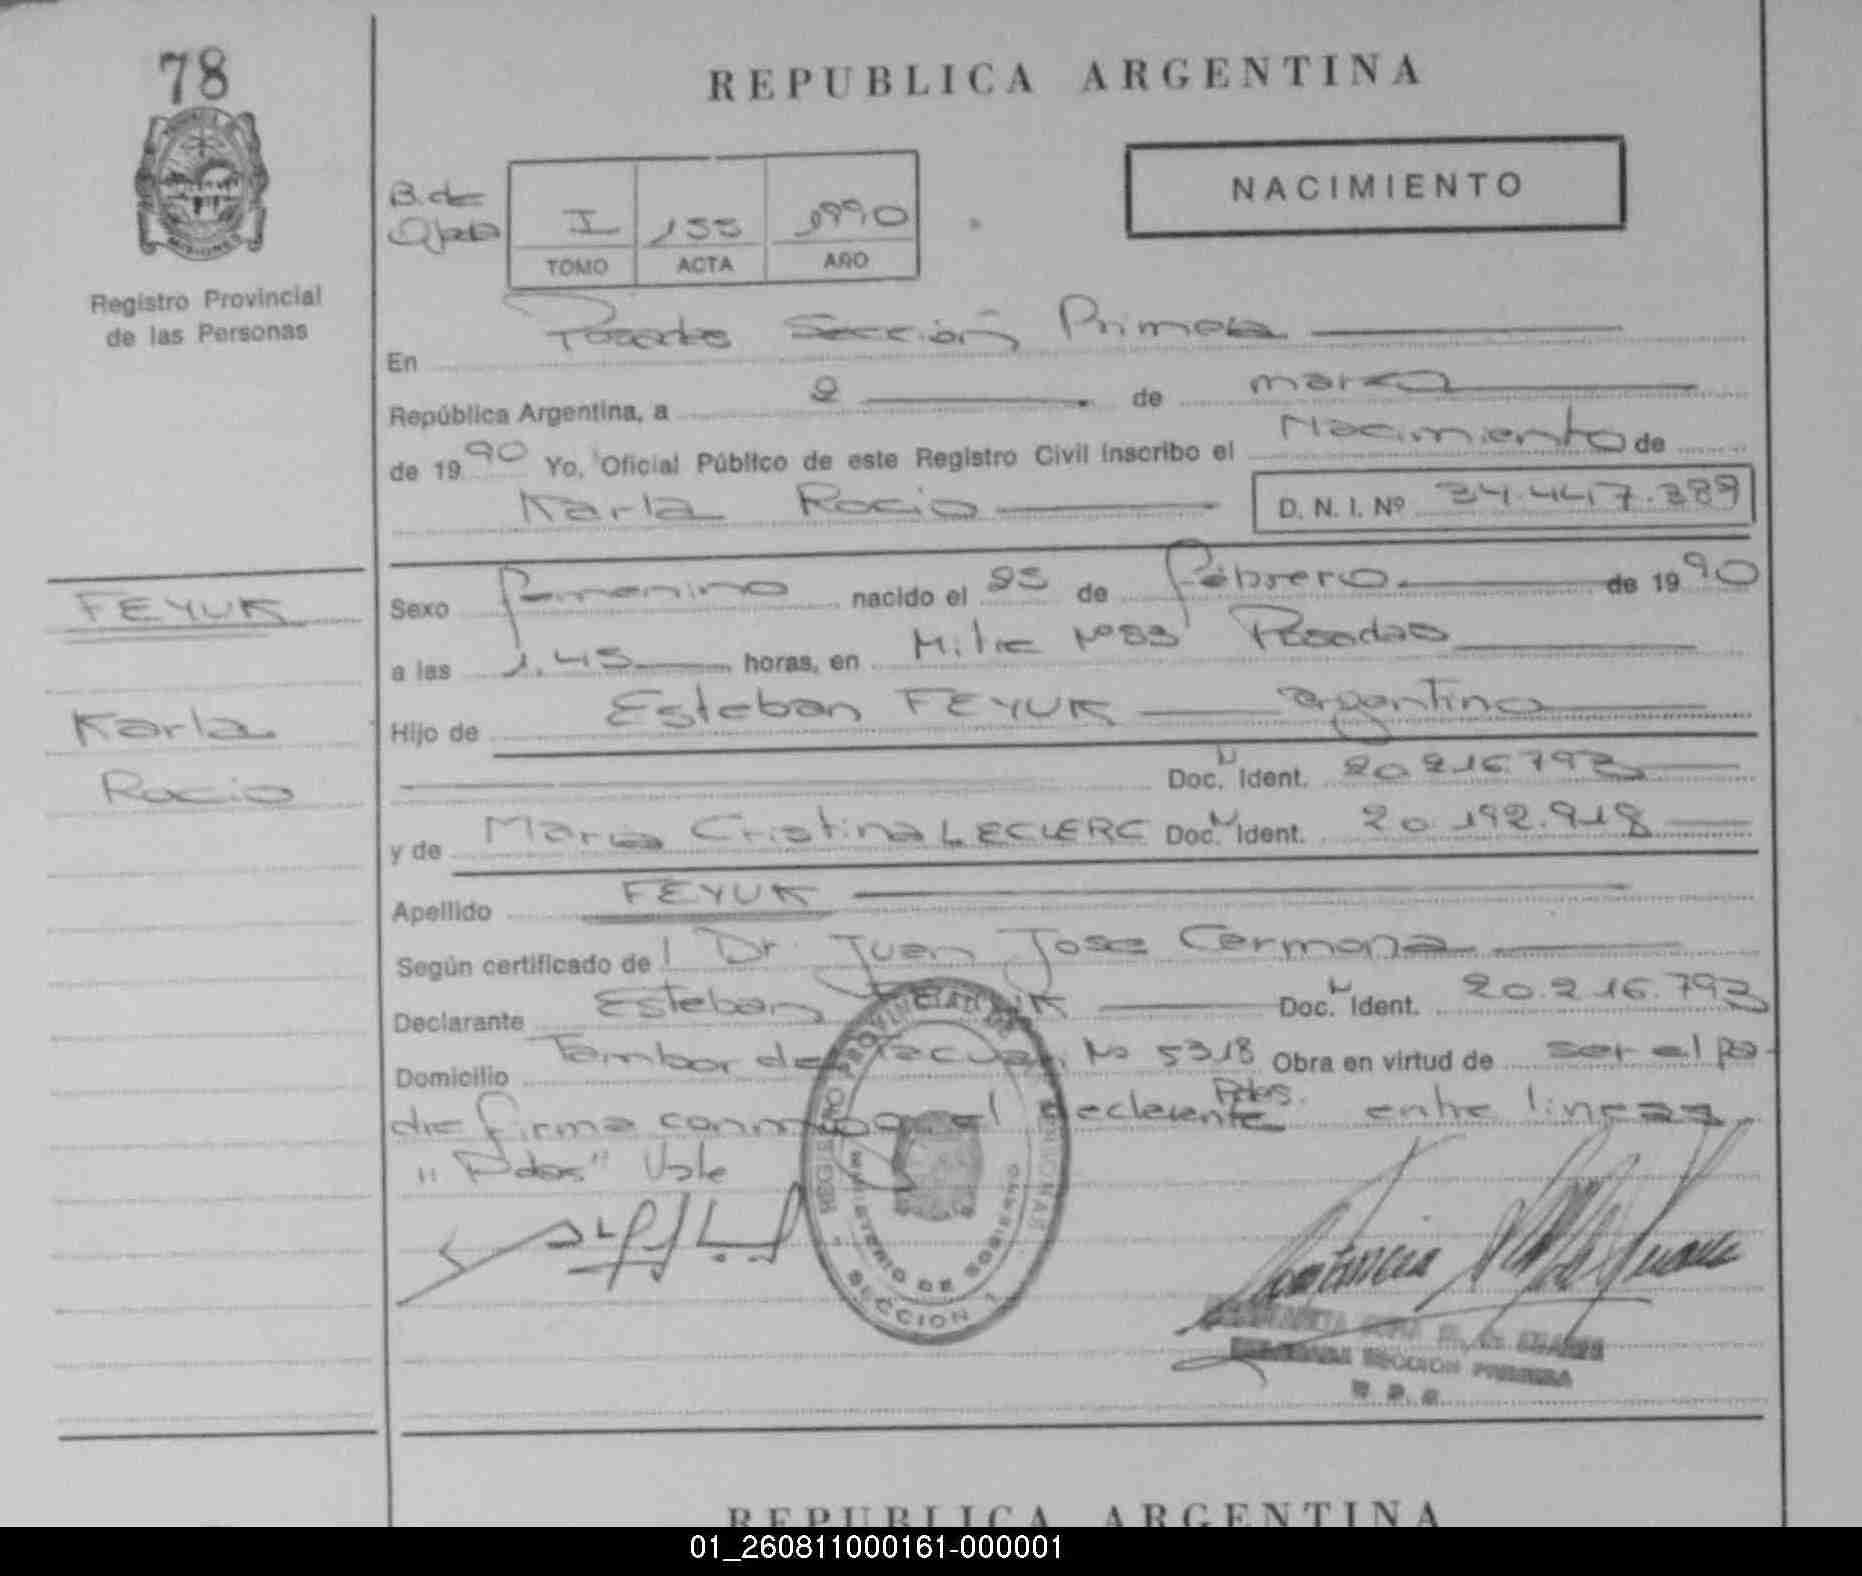 78
REPUBLICA ARGENTINA
NACIMIENTO
B. de
I 155 1990
TOMO ACTA AÑO
Registro Provincial
de las Personas
En Posadas Sección Primera
República Argentina, a 2 de marzo
de 1990 Yo, Oficial Público de este Registro Civil inscribo el Nacimiento de
Karla Rocio D. N. I. Nº 34.447.389
FEYUK
Karla
Rocio
Sexo femenino nacido el 25 de febrero de 1990
a las 1.45 horas, en M.i.he Nº 83 Posadas
Hijo de Esteban FEYUK argentino
Doc. N Ident. 20.216.793
y de Maria Cristina LECLERC Doc. N Ident. 20.192.918
Apellido FEYUK
Según certificado de l Dr. Juan Jose Carmona
Declarante Esteban FEYUK Doc. N Ident. 20.216.793
Domicilio Tambor de Tacuari No 5318 Obra en virtud de ser el pa-
dre firma conmigo el declarante Pdas. entre lineas
"Pdas" Vale
REGISTRO PROVINCIAL DE LAS PERSONAS
MINISTERIO DE GOBIERNO
SECCION 1
SECCION PRIMERA
REPUBLICA ARGENTINA
01_260811000161-000001